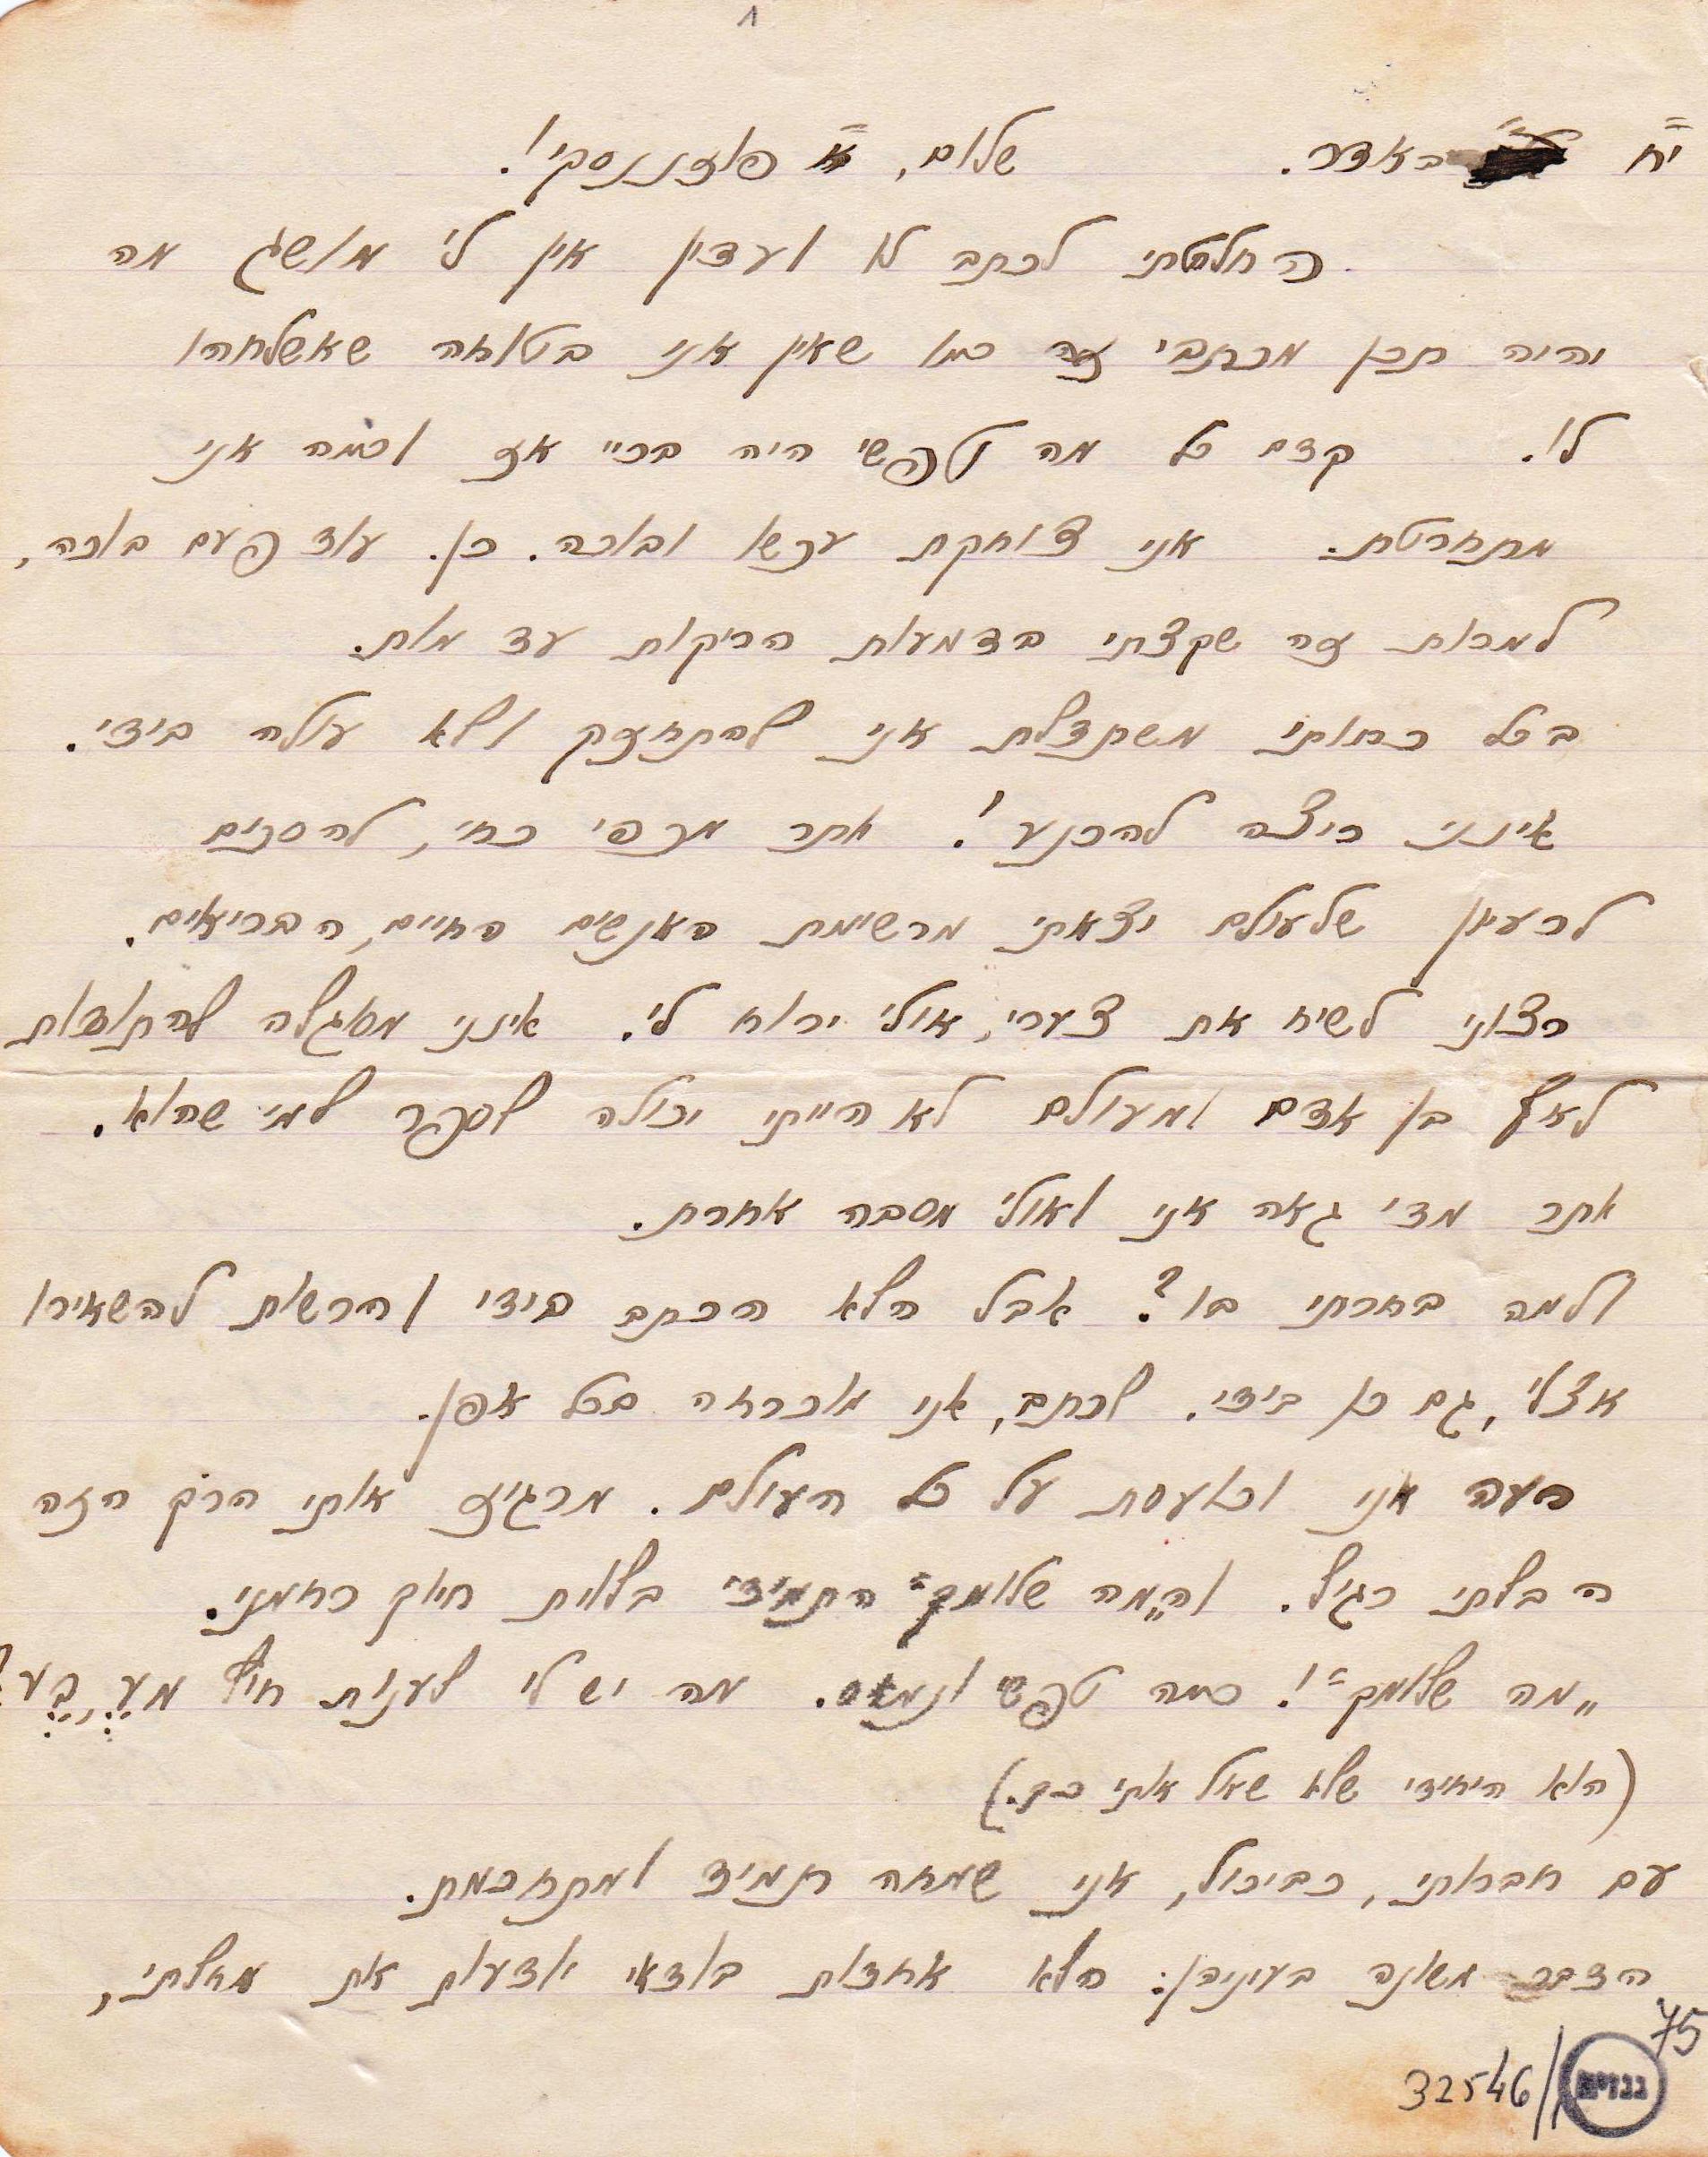 1
י"ח באדר. שלום, פוזננסקי!
החלטתי לכתב לו ועדין אין לי מושג מה
יהיה תכן מכתבי זה כמו שאין אני בטוחה שאשלחהו
לו. קדם כל מה טפשי היה בכיי אז וכמה אני
מתחרטת. אני צוחקת עכשו ובוכה. כן. עוד פעם בוכה,
למרות זה שקצתי בדמעות הריקות עד מות.
בכל כחותי משתדלת אני להתחזק ולא עולה בידי.
אינני רוצה להכנע! יותר מכפי כחי, להסכים
לרעיון שלעולם יצאתי מרשימת האנשים החיים, הבריאים.
רצוני לשיח את צערי, אולי ירוח לי. אינני מסוגלה להתודות
לאף בן אדם ומעולם לא הייתי יכולה לספר למי שהוא.
יותר מדי גאה אני ואולי מסבה אחרת.
ולמה בחרתי בו? אבל הלא הכתב בידי והרשות להשאירו
אצלי, גם כן בידי. לכתב, אני מוכרחה בכל אפן.
רעה אני וכועסת על כל העולם. מרגיז אותי הרֹק הזה
הבלתי רגיל. וה"מה שלומך" התמידי בלוית חיוך רחמני.
"מה שלומך"! כמה טפשי ונמאס. מה יש לי לענות חוץ
(הוא היחידי שלא שאל אותי כך.)
עם חברותי, כביכול, אני שמחה תמיד ומתחכמת.
הדבר משונה בעיניהן: הלא אחדות בודאי יודעות את מחלתי,
75
32546/1
גנזים